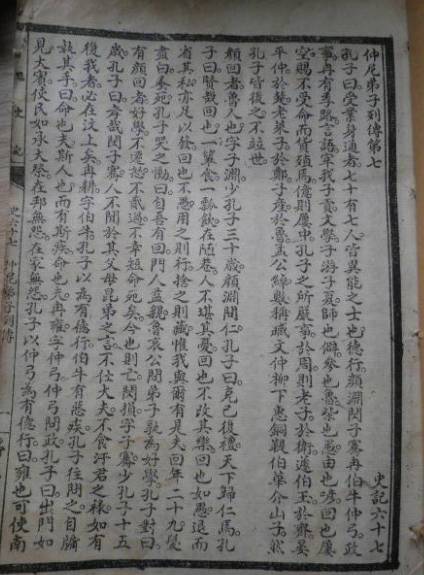 仲尼弟子列傳第七 史記六十七
孔子曰受業身通者七十有七人皆異能之士也德行顏淵閔子騫冉伯牛仲弓政
事冉有季路言語宰我子貢文學子游子夏師也僻參也魯柴也愚由也喭回也屢
空賜不受命而貨殖焉億則屢中孔子之所嚴事於周則老子於衛蘧伯玉於齊晏
平仲於楚老萊子於鄭子產於魯孟公綽數稱臧文仲柳下惠銅鞮伯華介山子然
孔子皆後之不並世
顏回者魯人也字子淵少孔子三十歲顏淵問仁孔子曰克己復禮天下歸仁焉孔
子曰賢哉回也一簞食一瓢飲在陋巷人不堪其憂回也不改其樂回也如愚退而
省其私亦足以發回也不愚用之則行捨之則藏惟我與爾有是夫回年二十九髮
盡白蚤死孔子哭之慟曰自吾有回門人益親魯哀公問弟子孰為好學孔子對曰
有顏回者好學不遷怒不貳過不幸短命死矣今也則亡閔損字子騫少孔子十五
歲孔子曰孝哉閔子騫人不間於其父母昆弟之言不仕大夫不食汙君之祿如有
復我者必在汶上矣冉耕字伯牛孔子以為有德行伯牛有惡疾孔子往問之自牖
執其手曰命也夫斯人也而有斯疾命也夫冉雍字仲弓仲弓問政孔子曰出門如
見大賓使民如承大祭在邦無怨在家無怨孔子以仲弓為有德行曰雍也可使南
史六十七 仲尼弟子列傳